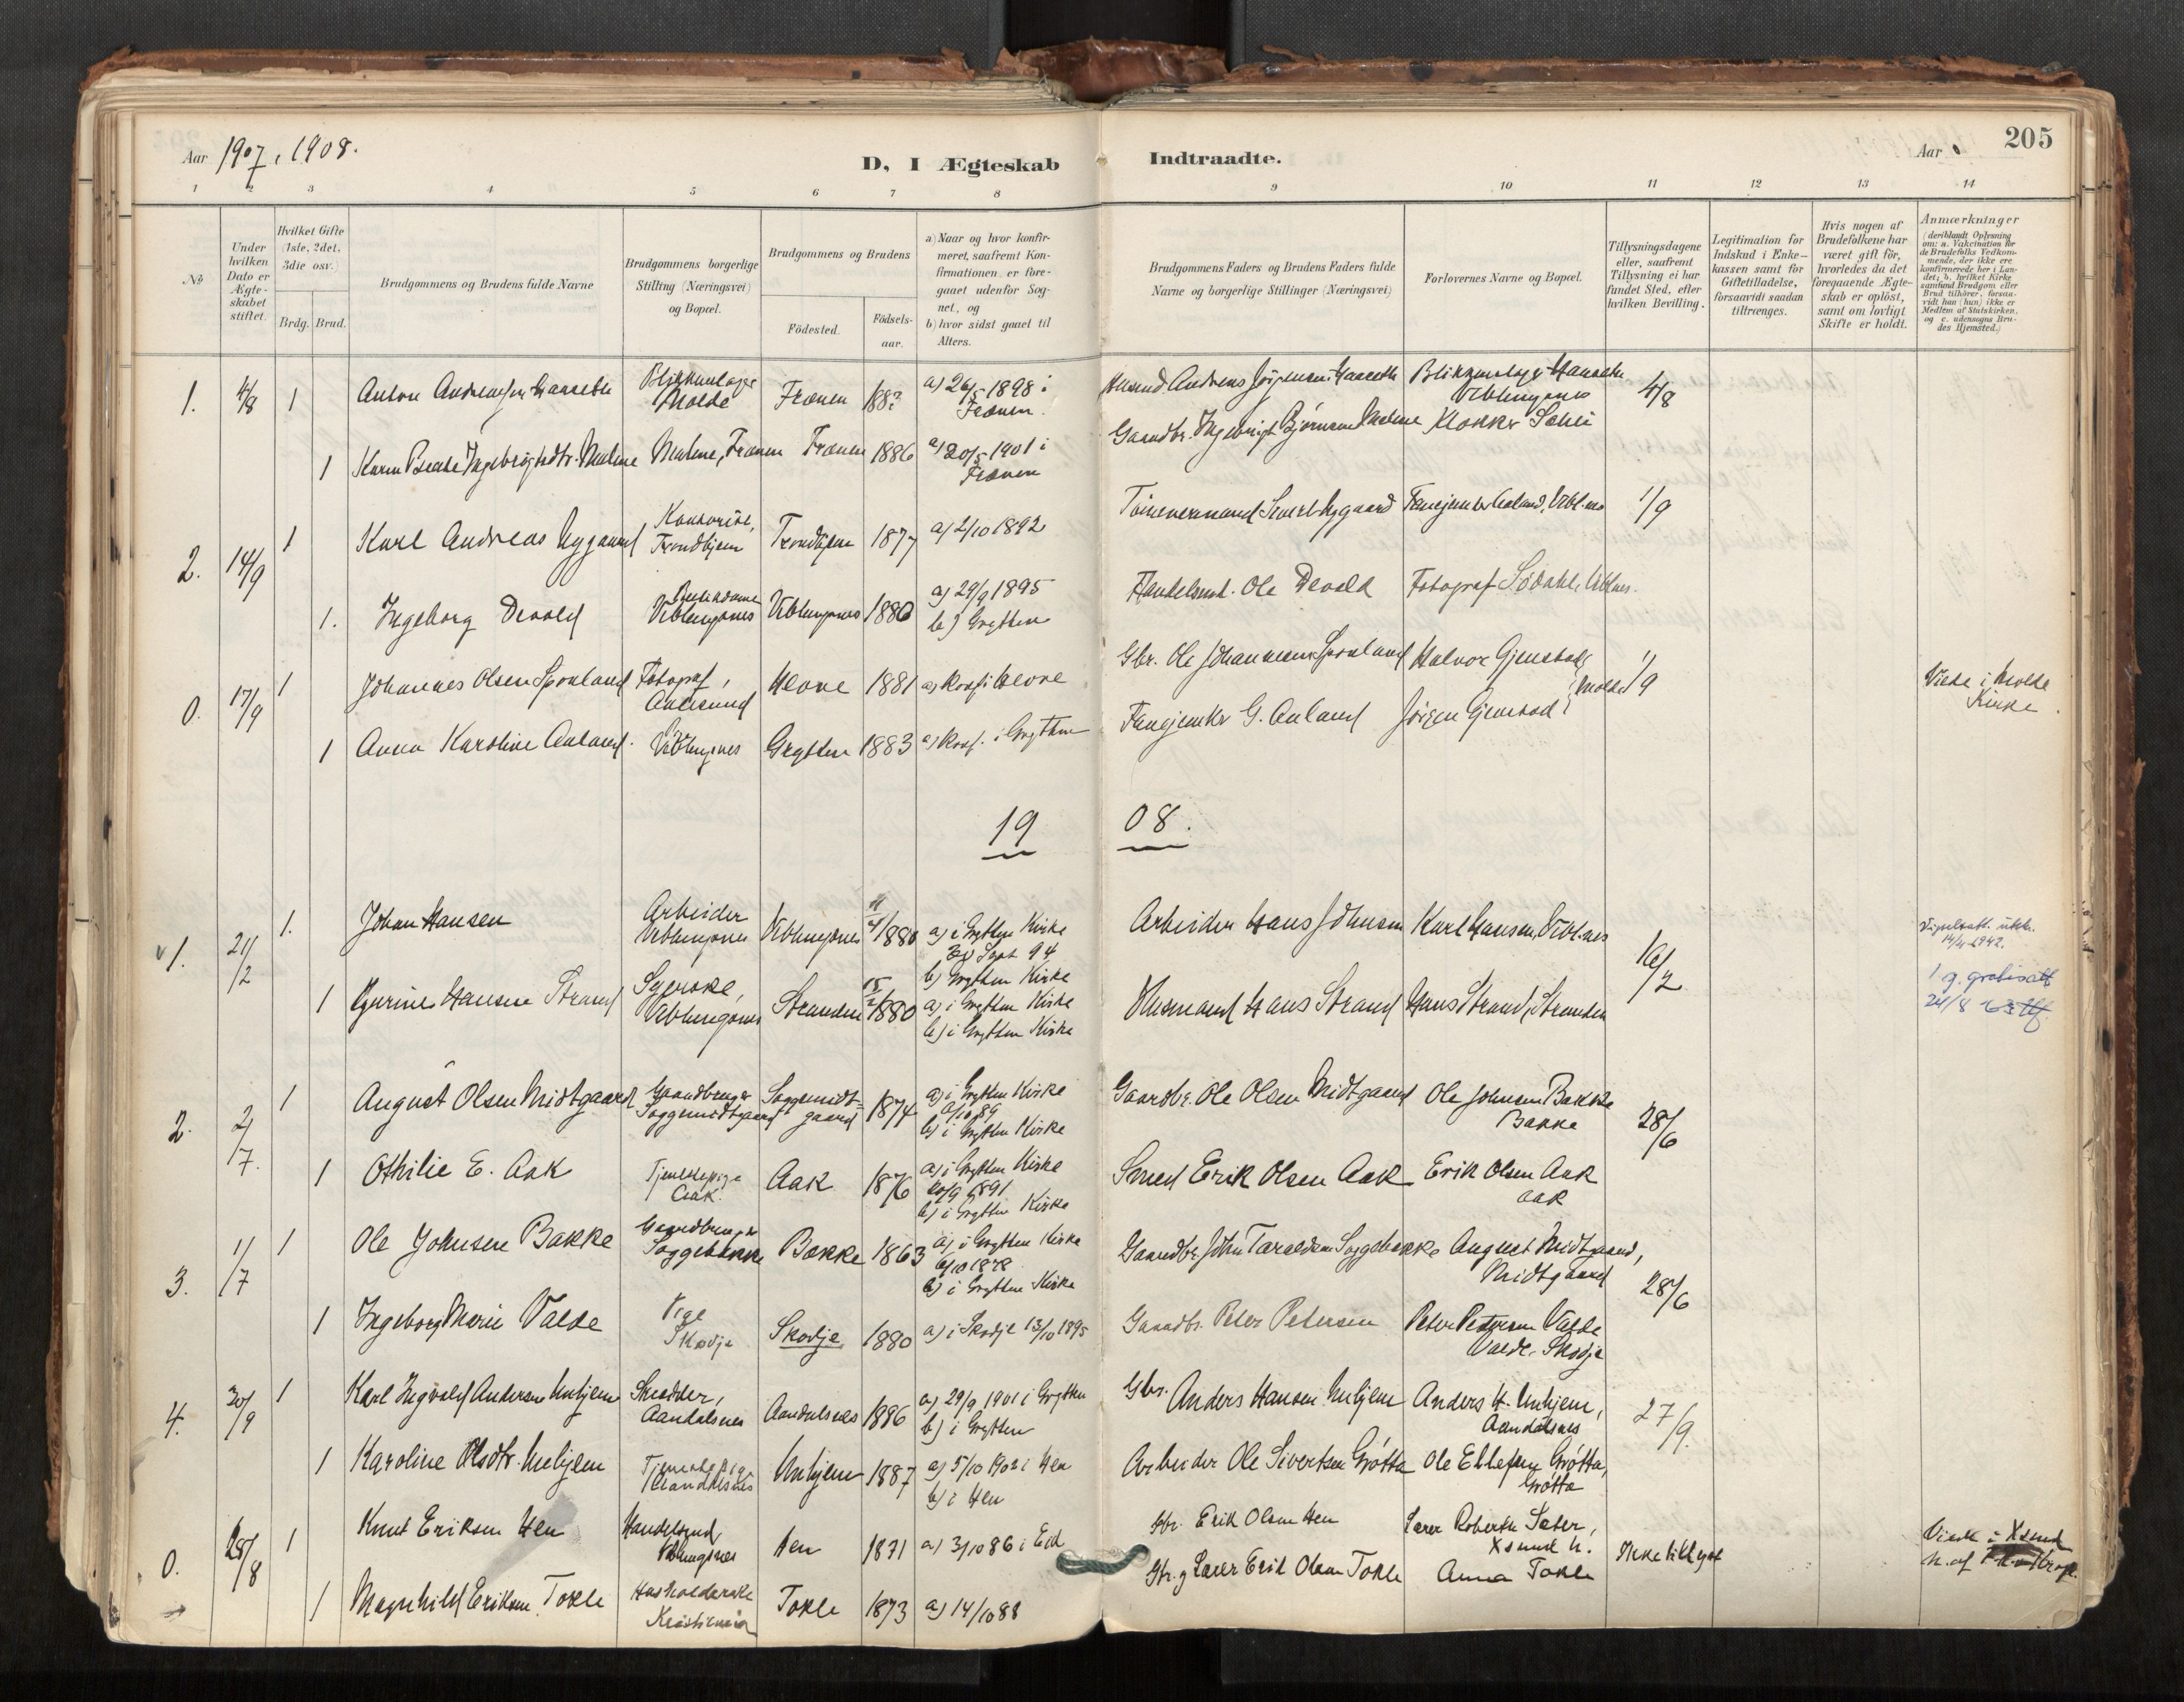 205
Aar 1907, 1908.
D, I Ægteskab
Indtraadte.
Aar
1 2 3 4 5 6 7 8
9 10 11 12 13 14
No
Under hvilken Dato er Ægteskabet stiftet.
Hvilket Gifte (1ste, 2det, 3die osv.)
Brdg. Brud.
Brudgommens og Brudens fulde Navne
Brudgommens borgerlige Stilling (Næringsvei) og Bopæl.
Brudgommens og Brudens
Födested.
Födsels-aar.
a) Naar og hvor konfirmeret, saafremt Konfirmationen er foregaaet udenfor Sognet, og
b) hvor sidst gaaet til Alters.
Brudgommens Faders og Brudens Faders fulde Navne og borgerlige Stillinger (Næringsvei)
Forlovernes Navne og Bopæl.
Tillysningsdagene eller, saafremt Tillysning ei har fundet Sted, efter hvilken Bevilling.
Legitimation for Indskud i Enkekassen samt for Giftetilladelse, forsaavidt saadan tiltrænges.
Hvis nogen af Brudefolkene har været gift för, hvorledes da det foregaaende Ægteskab er oplöst, samt om lovligt Skifte er holdt.
Anmærkninger (deriblandt Oplysning om: a. Vakcination for de Brudefolks Vedkommende, der ikke ere konfirmerede her i Landet; b. hvilket Kirkesamfund Brudgom eller Brud tilhörer, forsaavidt han (hun) ikke er Medlem af Statskirken, og c. udensogns Brudes Hjemsted.)
1. 4/8 1 Anton Molde Frænen a) 26/5 1898 i Frænen. Andreas 4/8
1 Karen Beate Ingebrigtsdtr. Malme Malme, Frænen Frænen 1886 a) 20/5 1901 i Frænen Gaardbr. Ingebrigt Bjørnsen Malme Klokker
2. 14/9 1 Karl Andreas Nygaard Kontorist, Trondhjem Trondhjem 1877 a) 2/10 1892 Nygaard 1/9
1. Ingeborg Devold Veblungsnes Veblungsnes 1880 a) 29/9 1895 b) Grytten Handelsmd. Ole Devold Fotograf Sødahl, Veblnes.
0. 17/9 1 Johannes Olsen Fotograf, Aalesund 1881 Gbr. Ole Johannesen Halvor Gjenstad, Molde 1/9 Viede i Molde Kirke.
1 Anna Karoline Aaland. Veblungsnes Grytten 1883 a) konf. i Grytten G. Aaland Jörgen Gjenstad
1908.
1. 21/2 1. Johan Hansen Arbeider Veblungsnes Veblungsnes 1880 a) i Grytten Kirke Sept 94 b) Grytten Kirke Arbeider Hans Johnsen Karl Hansen, Vebl.nes 16/2 14/4 1942.
1 Gurine Hansen Strand Syerske, Veblungsnes Stranden 15/2 1880 a) i Grytten Kirke b) i Grytten Kirke Husmand Hans Strand Hans Strand, Stranden 1 g. gratisatt 24/8
2. 2/7. 1 August Olsen Midtgaard Gaardbruger Soggemidtgaard Soggemidtgaard 1874 a) i Grytten Kirke b) i Grytten Kirke Gaardbr. Ole Olsen Midtgaard Ole Johnsen Bakke Bakke 28/6
1 Othilie E. Aak Tjenestepige Aak. Aak 1876 a) i Grytten Kirke 20/9 1891 b) i Grytten Kirke Smed Erik Olsen Aak Erik Olsen Aak Aak
3. 1/7 1 Ole Johnsen Bakke Gaardbruger Soggebakke Bakke 1863 a) i Grytten Kirke 6/10 1878 b) i Grytten Kirke Gaardbr. John Taraldsen Soggebakke August Midtgaard, Midtgaard 28/6
1 Ingeborg Marie Valde Pige Skodje Skodje 1880 a) i Skodje 13/10 1895 Gaardbr. Peter Petersen Peter Petersen Valde Valde, Skodje
4. 30/9 1 Karl Ingvald Andersen Unhjem Skrædder, Aandalsnes Aandalsnes 1886 a) 29/9 1901 i Grytten b) i Grytten Gbr. Anders Hansen Unhjem Anders H. Unhjem, Aandalsnes 27/9.
1 Karoline Olsdtr. Unhjem Tjenestepige Aandalsnes Unhjem 1887 a) 5/10 1902 i Hen b) i Hen Arbeider Ole Sivertsen Grøtta Ole Ellefsen Grøtta, Grøtta
0. 28/8 1 Knut Eriksen Hen Handelsmd. Veblungsnes Hen 1871 a) 3/10 86 i Eid Gbr. Erik Olsen Hen Lærer Robert Sæter, Xsund N. Ikke tillyst Viede i Xsund N. af
1 Magnhild Eriksen Tokle Husholderske Kristiania Tokle 1873 a) 14/10 88 Gbr. og Lærer Erik Olsen Tokle Anna Tokle